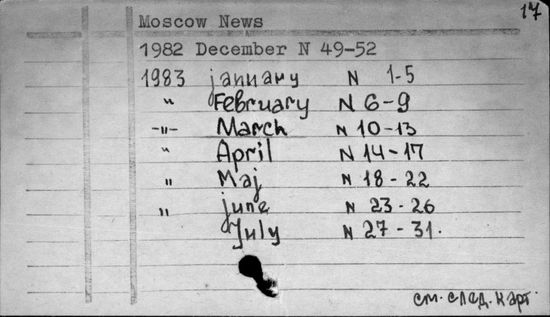 17
Moscow News
1982 December N 49-52
1983 january N 1-5
" February N 6-9
-"- March N 10-13
" April N 14-17
" Maj N 18-22
" june N 23-26
July N 27-31.
см. след. карт.